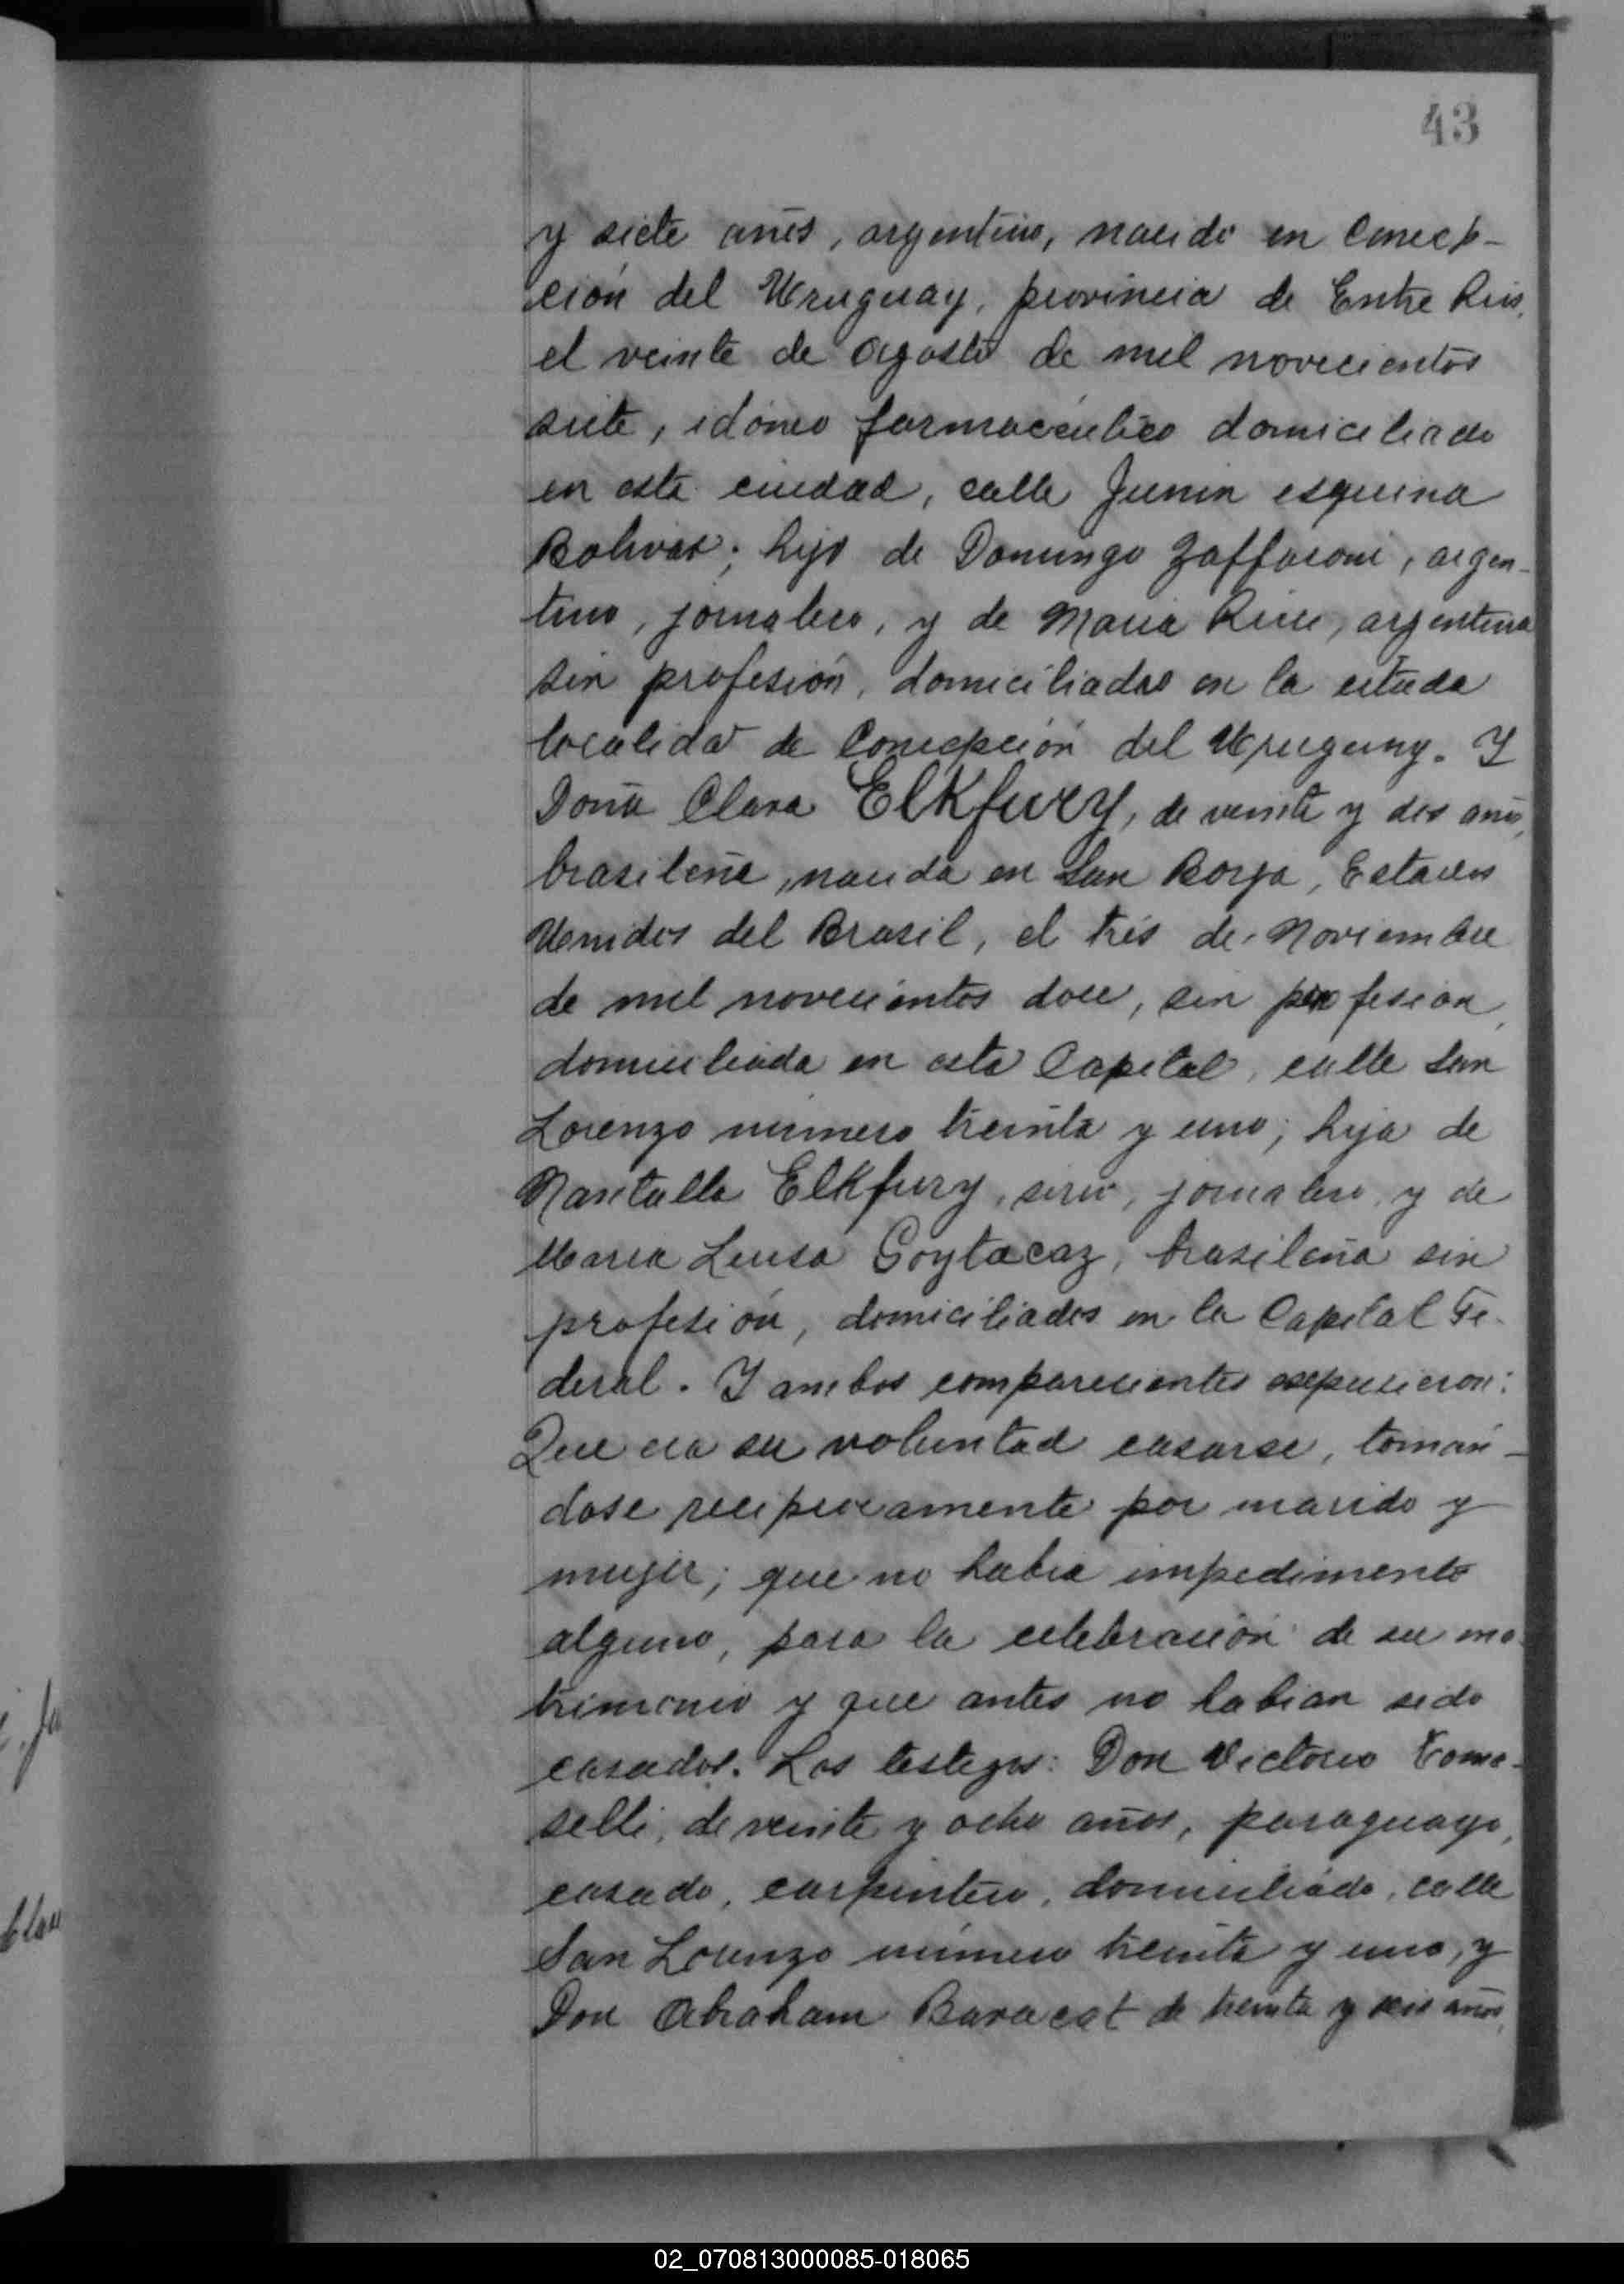 43
y siete años, argentino, nacido en Concep-
ción del Uruguay, provincia de Entre Rios,
el veinte de Agosto de mil novecientos
siete, idóneo farmacéutico domiciliado
en esta ciudad, calle Junin esquina
Bolivar; hijo de Domingo Zaffaroni, argen-
tino, jornalero, y de Maria argentina
sin profesión, domiciliados en la citada
localidad de Concepción del Uruguay. Y
Doña Clara Elkfury, de veinte y dos años,
brasileña, nacida en San Borja, Estados
Unidos del Brasil, el tres de Noviembre
de mil novecientos doce, sin profesion,
domiciliada en esta Capital, calle San
Lorenzo número treinta y uno; hija de
Elkfury, sirio, jornalero, y de
Maria Luisa Goytacaz, brasileña sin
profesión, domiciliados en la Capital Fe-
deral. Y ambos comparecientes expusieron:
Que era su voluntad casarse, tomán-
dose reciprocamente por marido y
mujer; que no habia impedimento
alguno, para la celebración de su ma-
trimonio y que antes no habian sido
casados. Los testigos: Don Victorio Toma-
selli, de veinte y ocho años, paraguayo,
casado, carpintero, domiciliado, calle
San Lorenzo número treinta y uno, y
Don Abraham Baracat de treinta y seis años,
02_070813000085-018065